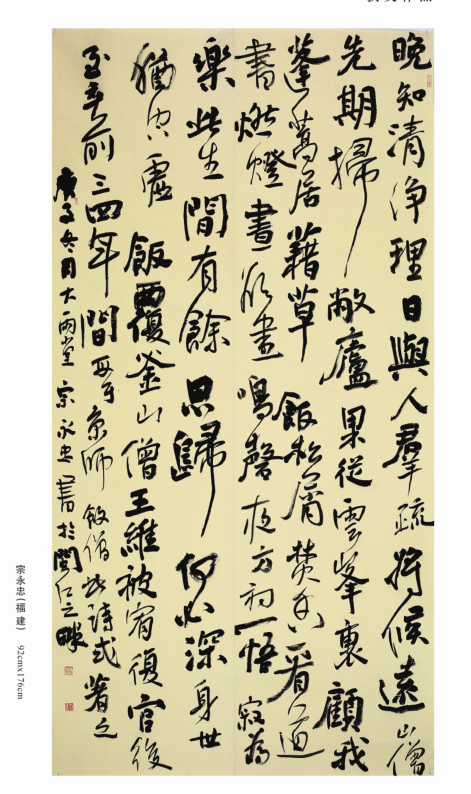 晚知清淨理日與人羣疏將候遠山僧
先期掃敝廬果從雲峯裏顧我
蓬蒿居藉草飯松屑焚香看道
書燃燈晝欲盡鳴磬夜方初一悟寂為
樂此生間有餘思歸何必深身世
猶空虛 飯覆釜山僧王維被宥復官後
至卒前三四年間每于京師飯僧此詩或著之
庚子冬月大雨堂宗永忠書於閩江之畔
宗永忠(福建) 92cmx176cm